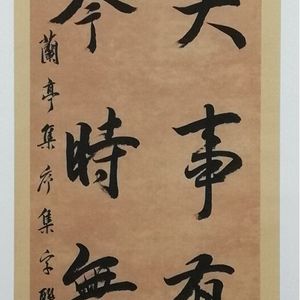 大事有
今時無
蘭亭集序集字聯